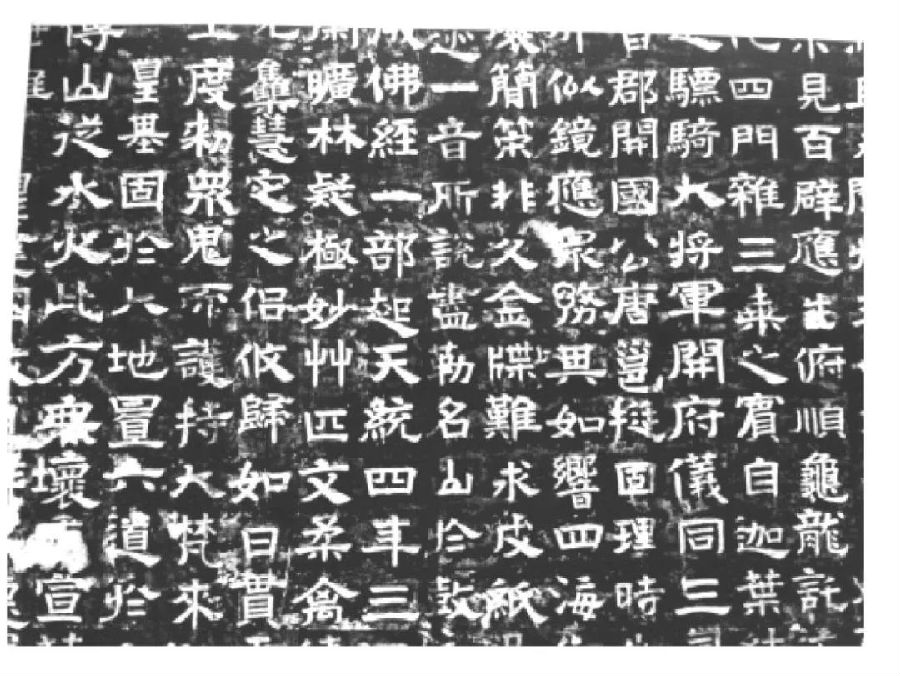 見百辟應生俯順龜龍託
四門雜三乘之賓自迦葉
驃騎大將軍開府儀同三
郡開國公唐邕挺固理時
似鏡應眾務其如響四海
簡策非久金牒難求皮紙
一音所說盡勒名山於鼓
佛經一部起天統四年三
曠林疑極妙艸匹文柔禽
集慧定之侶攸歸如日貫
度勑眾鬼而護持大梵來
皇基固於大地置六道於
山從水火此方無壞宣